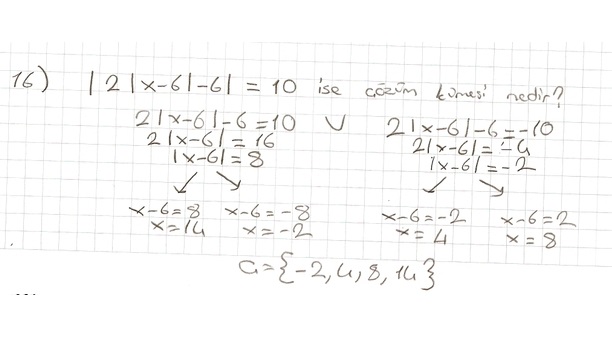 16) |2|x-6|-6| = 10 ise çözüm kümesi nedir?
2|x-6|-6=10 V 2|x-6|-6=-10
2|x-6|=16 2|x-6|=-4
|x-6|=8 |x-6|=-2
x-6=8 x-6=-8 x-6=-2 x-6=2
x=14 x=-2 x=4 x=8
Ç={-2,4,8,14}